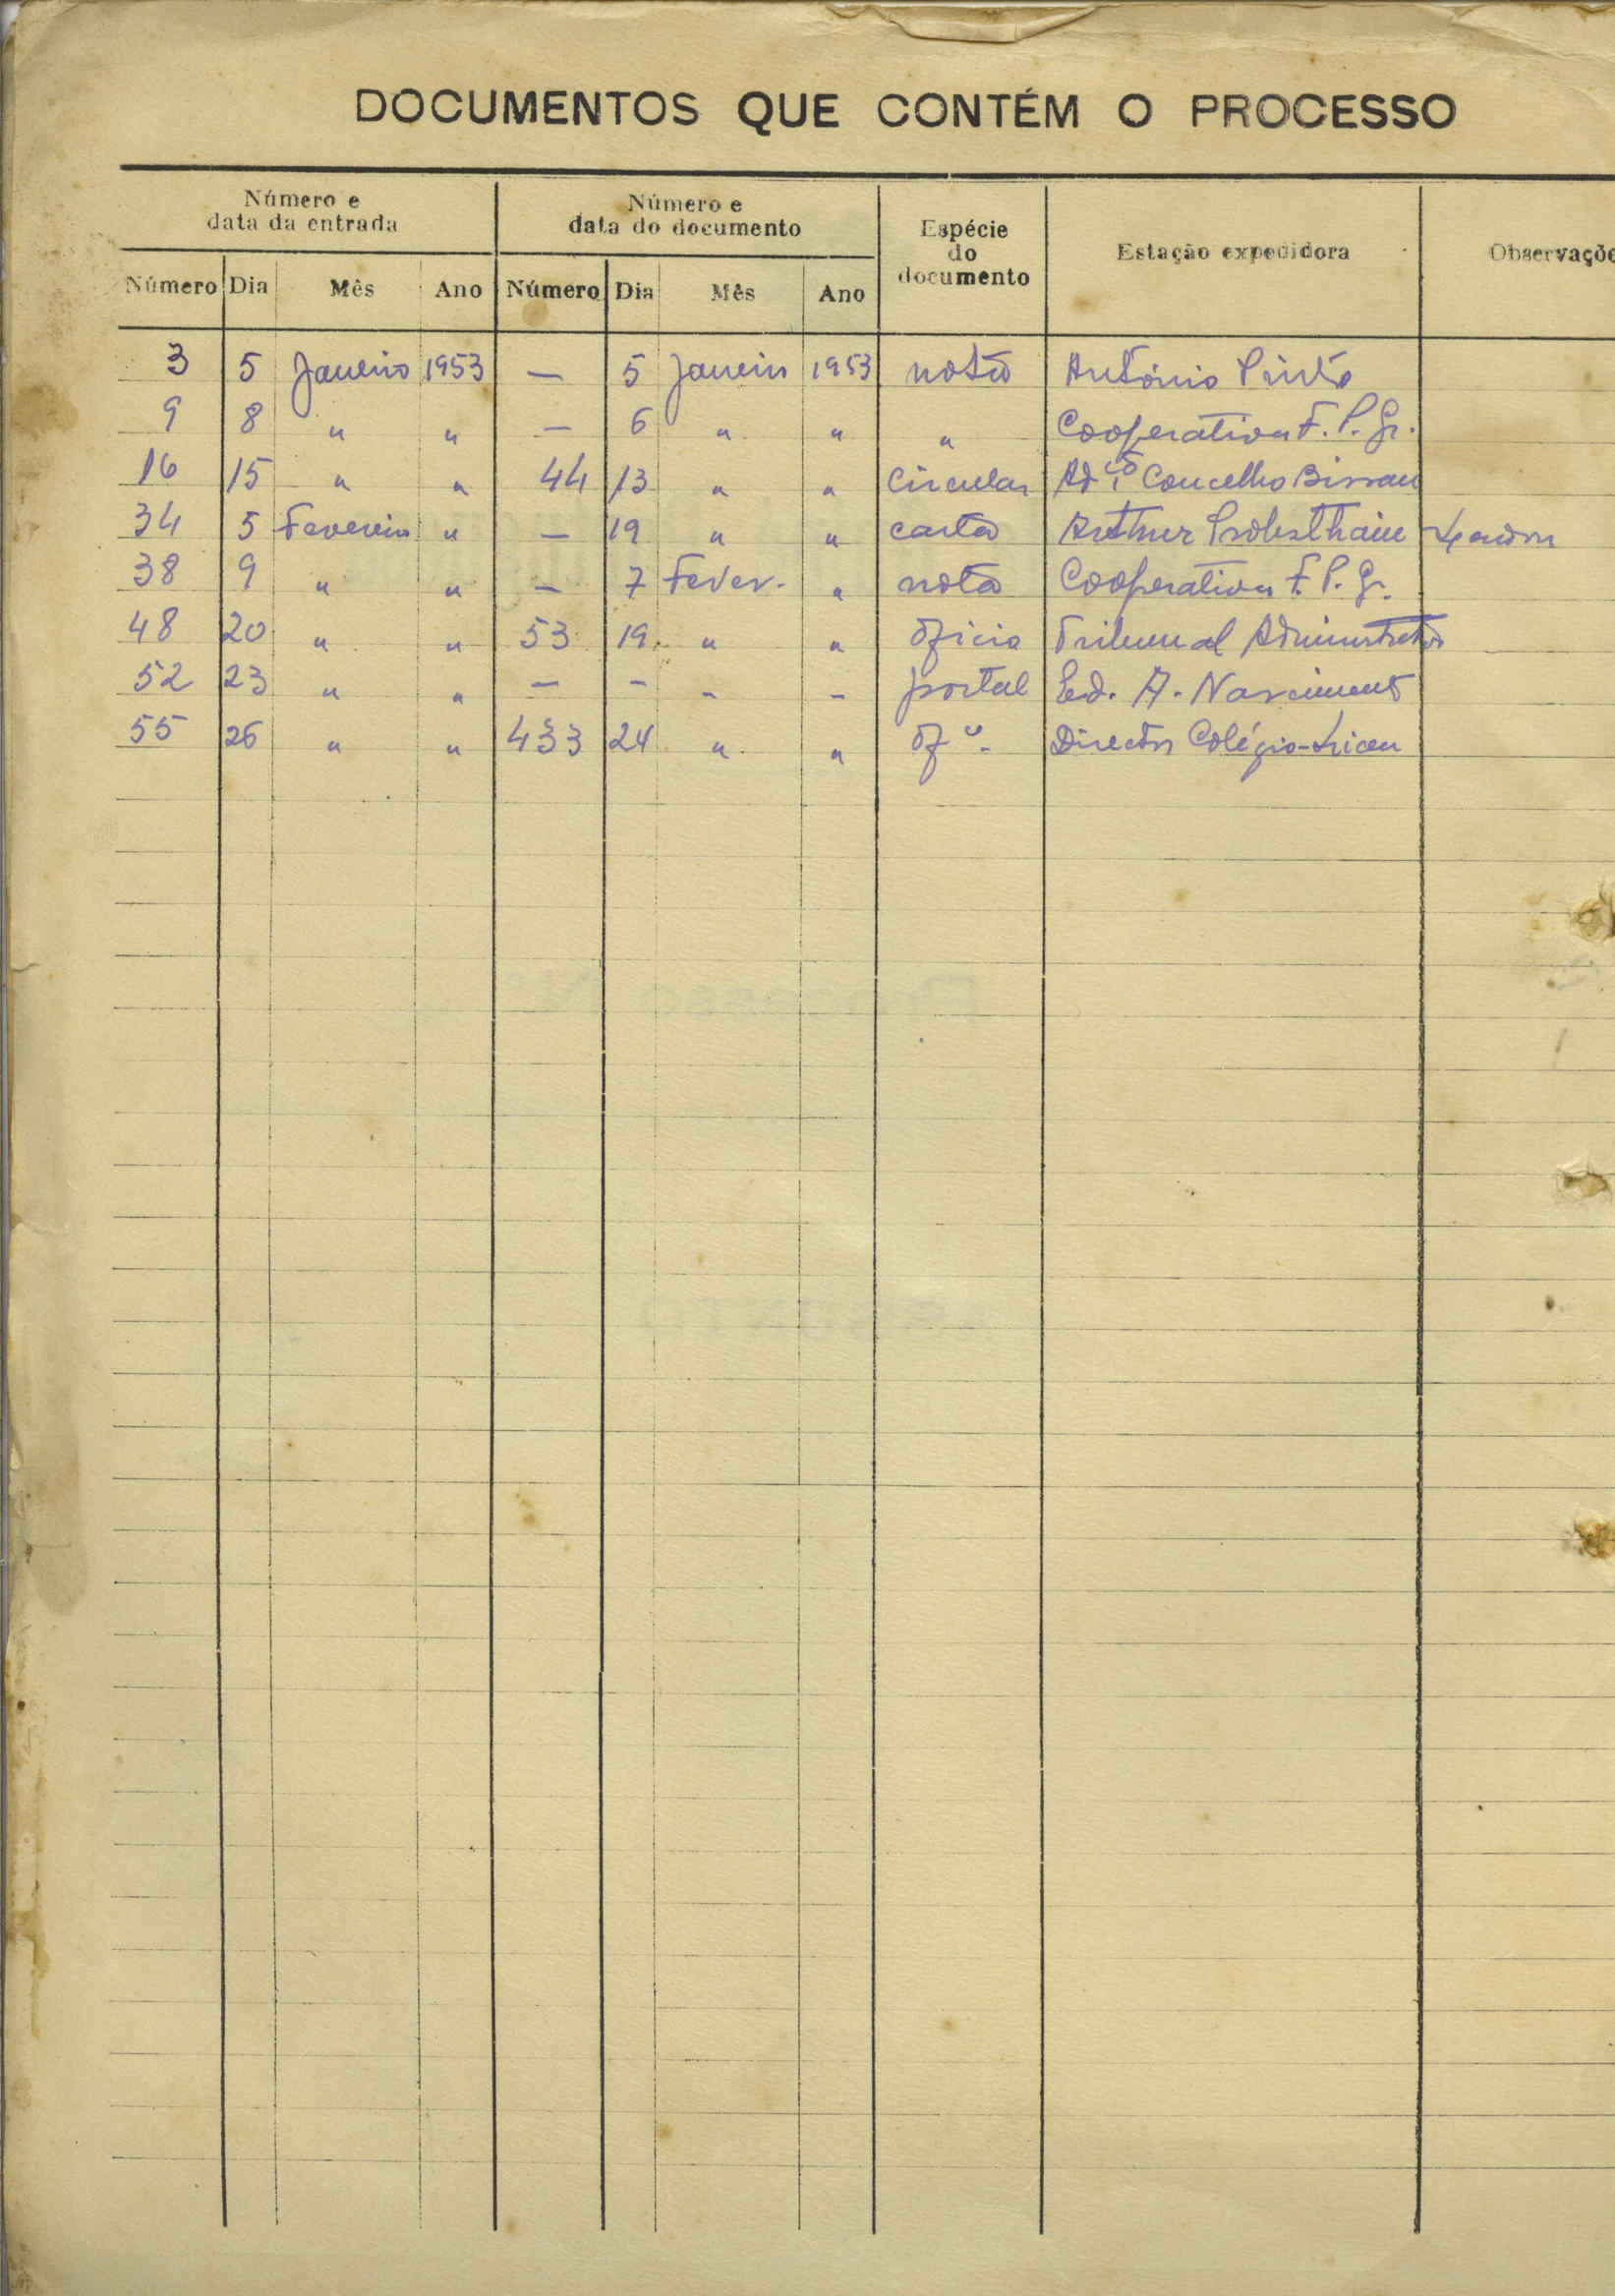 DOCUMENTOS QUE CONTÉM O PROCESSO
Número e data da entrada
Número e data do documento
Espécie do documento
Estação expedidora
Observaçõe
Número Dia Mês Ano Número Dia Mês Ano
3 5 Janeiro 1953 — 5 Janeiro 1953 nota António Pinto
9 8 " " — 6 " " " Cooperativa F. P. G.
16 15 " " 44 13 " " circular Ad. Concelho Bissau
34 5 Fevereiro " — 19 " " carta Arthur Probsthain London
38 9 " " — 7 Fever. " nota Cooperativa F. P. G.
48 20 " " 53 19 " " ofício Tribunal Administrativo
52 23 " " — - - - postal Ed. A. Nascimento
55 26 " " 433 24 " " ofº. Director Colégio-Liceu